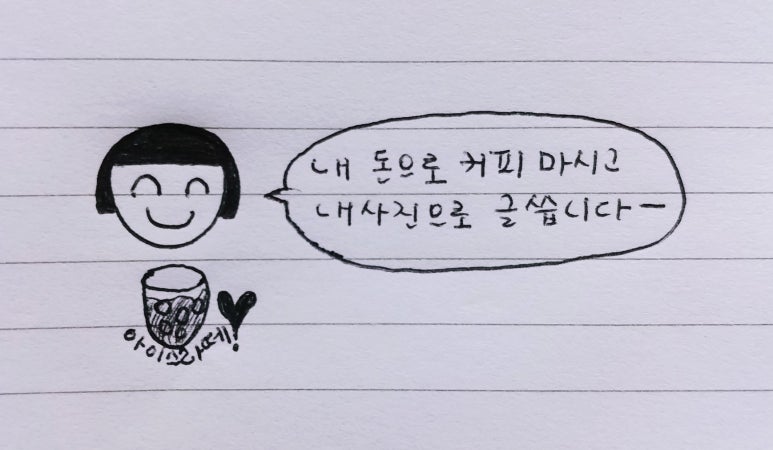 내 돈으로 커피 마시고
내사진으로 글 씁니다ー
아이스라떼!